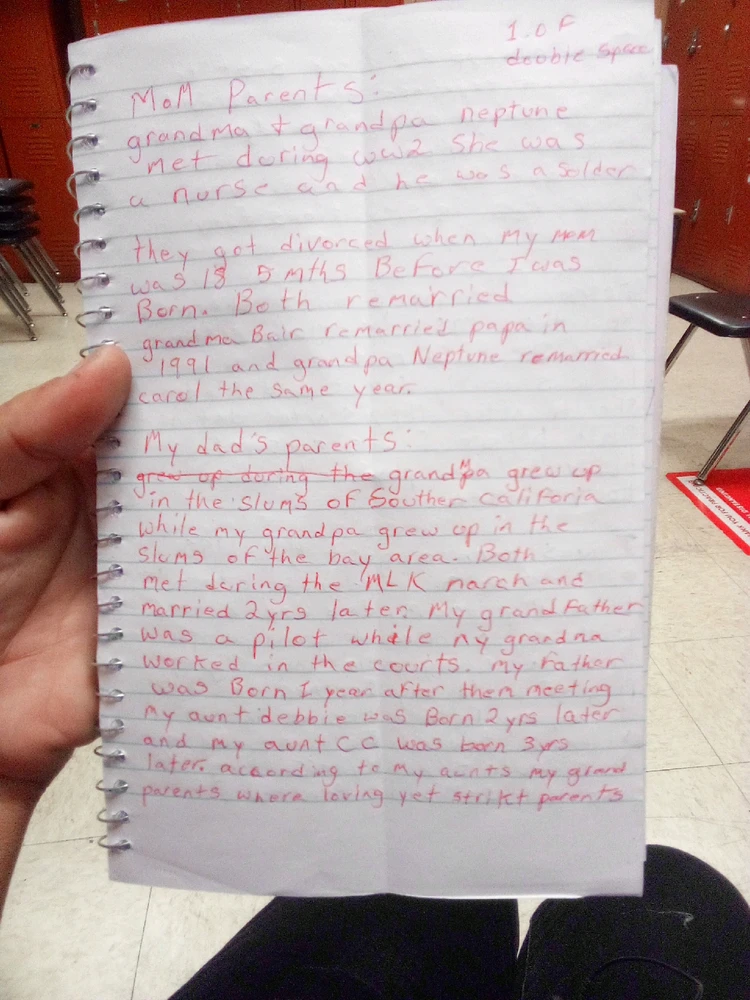 1. of
double space
MoM Parents:
grandma & grandpa neptune
met during ww2 she was
a nurse and he was a solder
they got divorced when my mom
was 18 5 mths Before I was
Born. Both remarried
grandma Bair remarried papa in
1991 and grandpa Neptune remarried
carol the same year.
My dad's parents:
grew up during the grandma grew up
in the slums of Souther califoria
while my grandpa grew up in the
slums of the bay area. Both
met during the MLK march and
married 2yrs later. My grandfather
was a pilot while my grandma
worked in the courts. my father
was Born 1 year after them meeting
my aunt debbie was Born 2yrs later
and my aunt CC was born 3yrs
later. according to my aunts my grand
parents where loving yet strikt parents